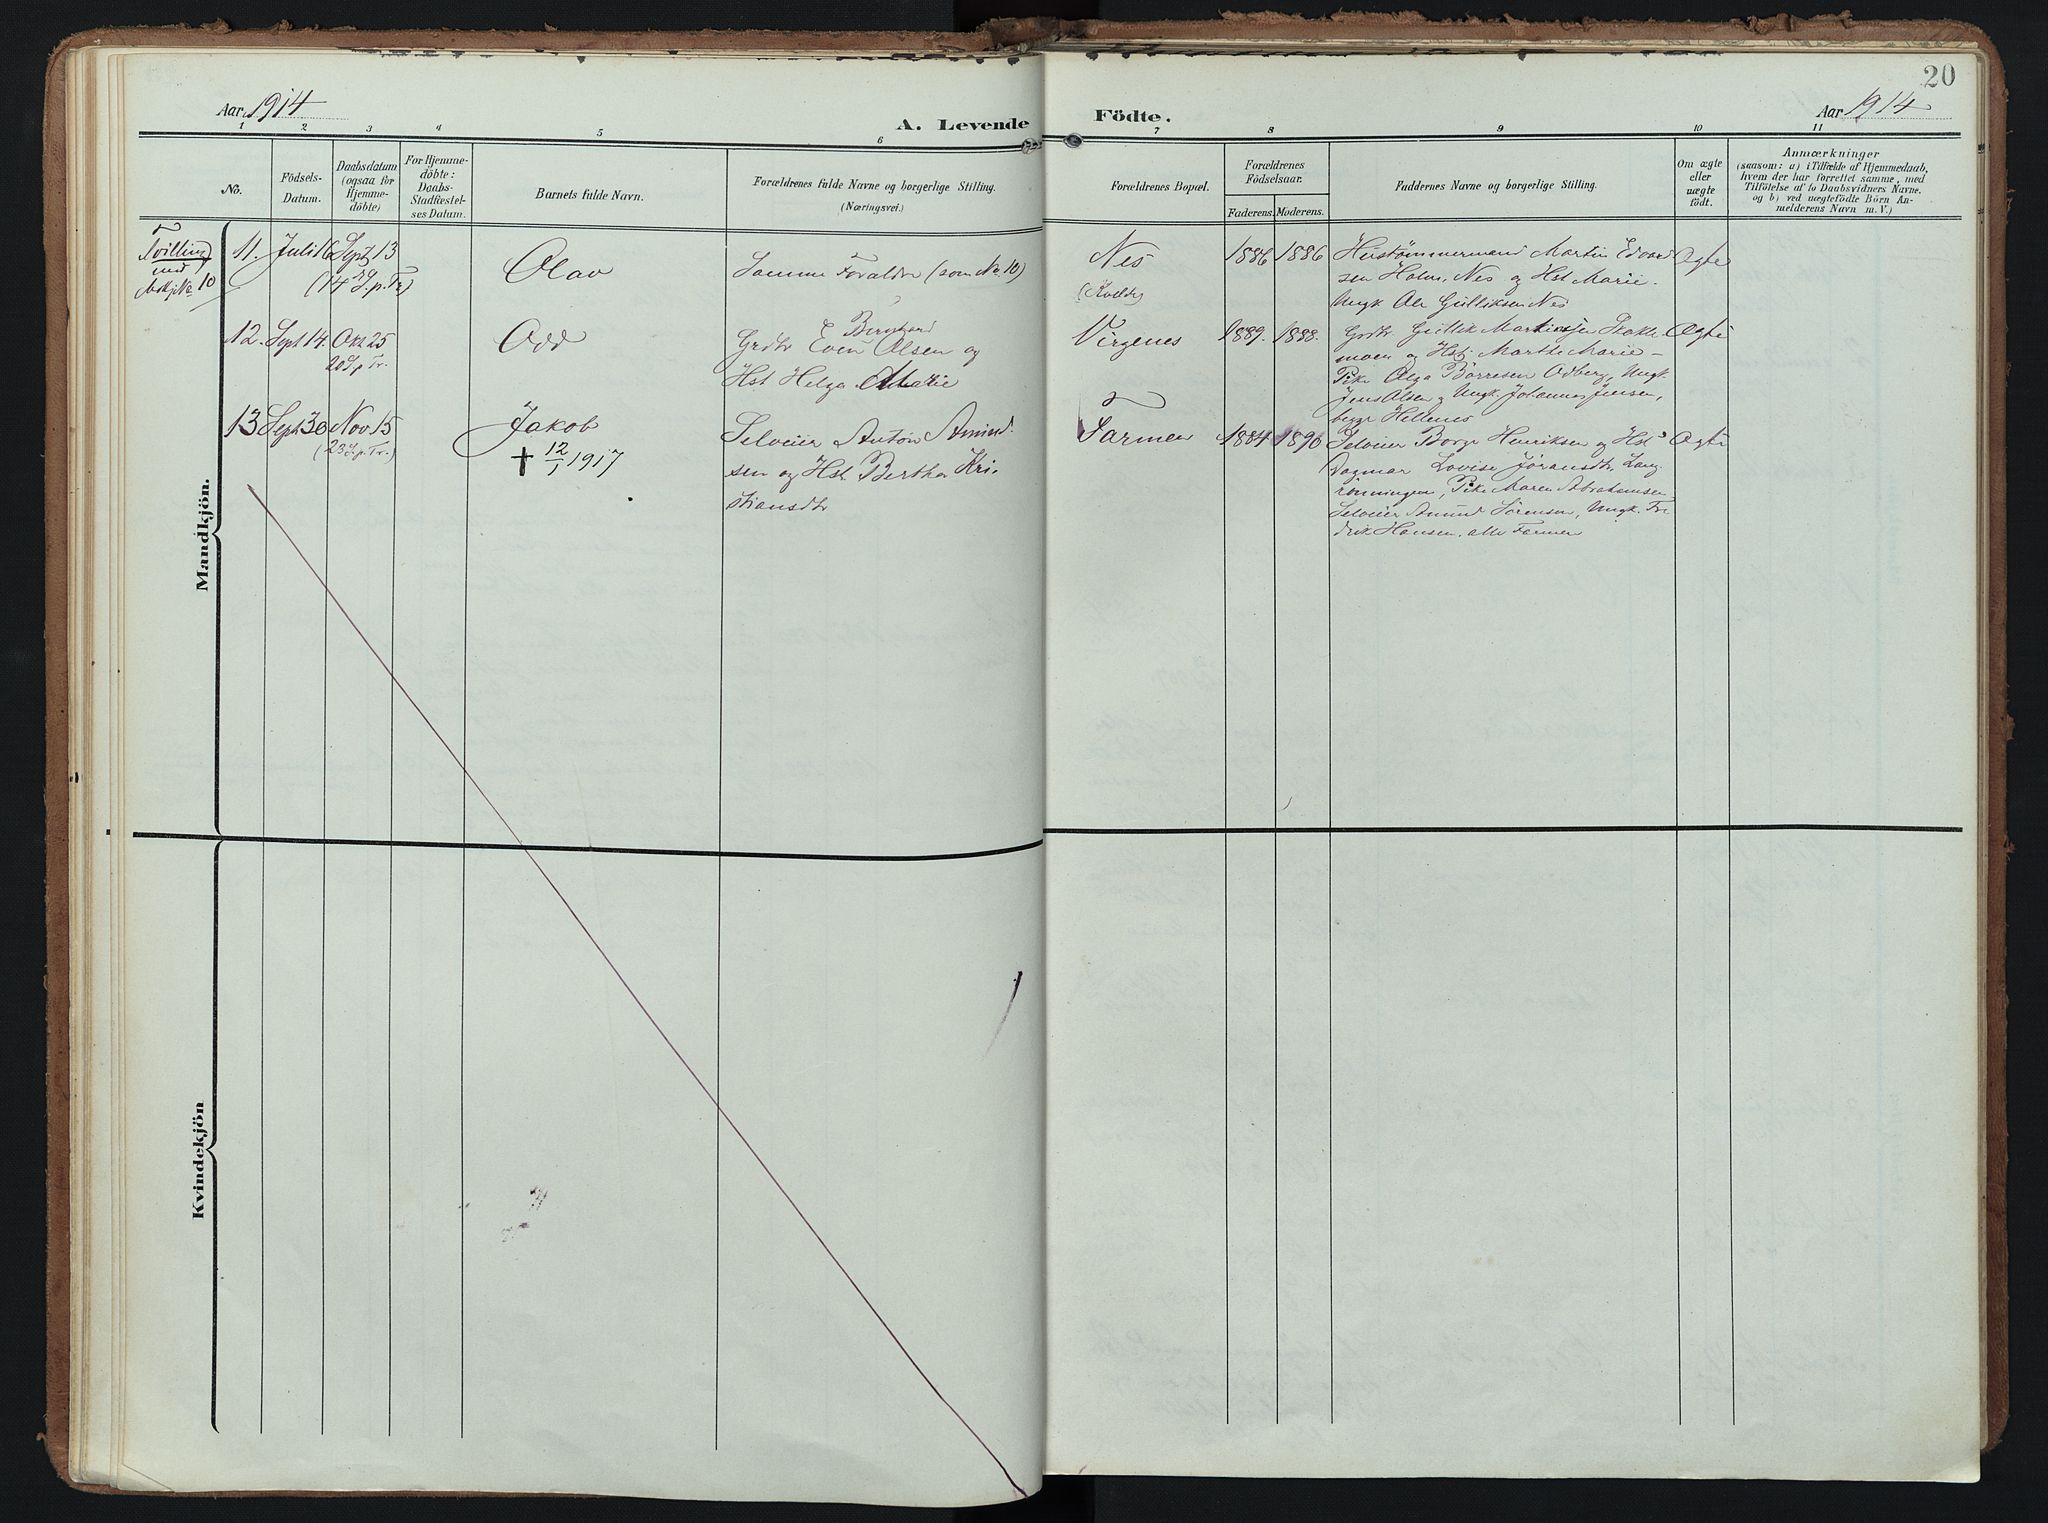 20
Aar 1914
A. Levende Födte.
Aar 1914
1 2 3 4 5 6 7 8 9 10 11
No.
Födsels-
Datum.
Daabsdatum
(ogsaa for
Hjemme-
döbte)
For Hjemme-
döbte:
Daabs-
Stadfestel-
ses Datum.
Barnets fulde Navn.
Forældrenes fulde Navne og borgerlige Stilling.
(Næringsvei.)
Forældrenes Bopæl.
Forældrenes
Födselsaar.
Faderens. Moderens.
Faddernes Navne og borgerlige Stilling.
Om ægte
eller
uægte
födt.
Anmærkninger
(saasom: a) i Tilfælde af Hjemmedaab,
hvem der har forrettet samme, med
Tilföielse af to Daabsvidners Navne.
og b) ved uægtefödte Börn An-
melderens Navn m. V.)
Mandkjön.
Tvilling
med
No 10
11. Juli 16 Sept 13
(14 S. p. Tr)
Olav
Samme Foraldre (som No 10)
Nes
1886 1886
Hustømmermand Martin Edvard
sen Holm, Nes og Hst Marie.
Ungk Ole Gulliksen Nes
Ægte
12. Sept 14. Okt 25
20 S. p Tr.
Odd
Bernhard
Grdbr Even Olsen og
Hst Helga Marie
Virgenes
1889. 1888.
Grdbr Gullik Martinsen Skakke-
moen og Hst Marthe Marie -
Pike Olga Børresen Odberg, Ungk.
Jens Olsen og Ungk Johannes Jensen,
begge Hellenes
Ægte
13 Sept 30 Nov 15
(23 S. p. Tr.)
Jakob
† 12/1 1917
Selveier Anton Amund-
sen og Hst Bertha Kri-
stiansdtr
Farmen
1884 1890
Selveier Borge Henriksen og Hst
Dagmar Lovise Jøransdtr, Lang-
rønningen, Pike Maren Abrahamsen
Selveier Amund Sørensen, Ungk. Fre
drik Hansen, alle Farmen
Ægte
Kvindekjön